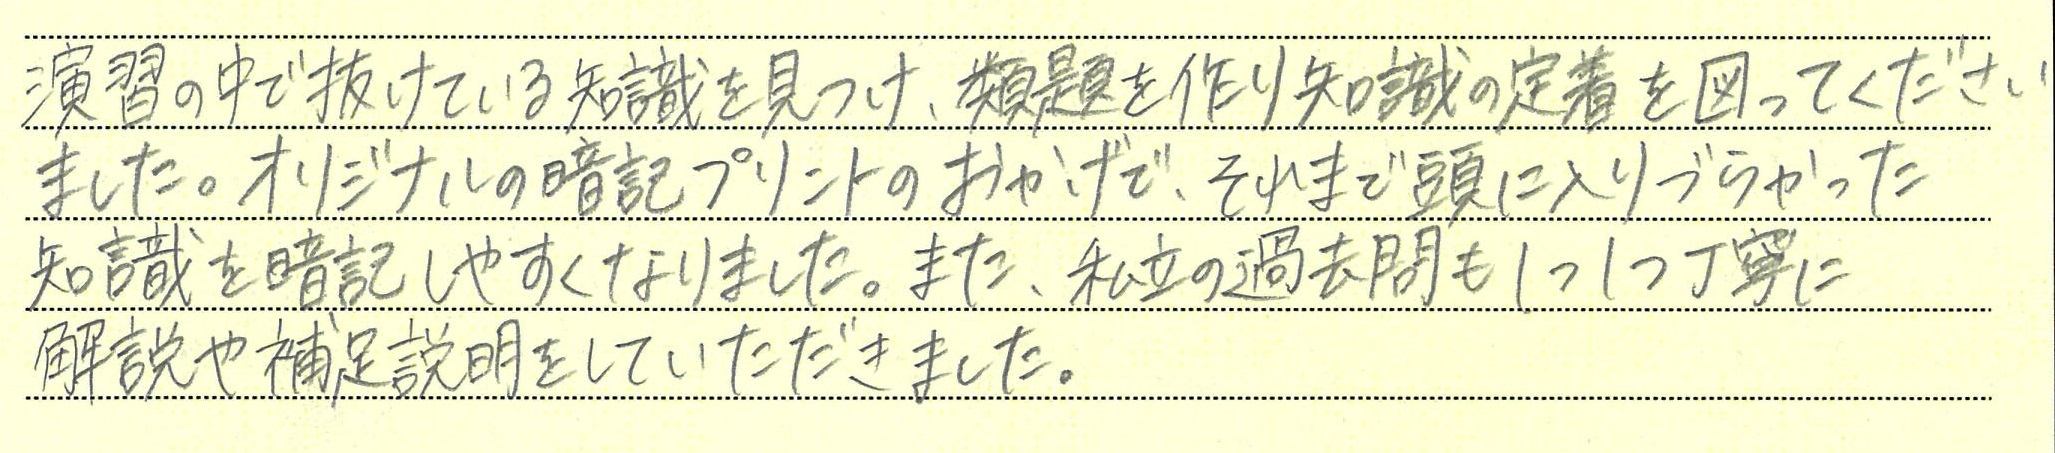 演習の中で抜けている知識を見つけ、類題を作り知識の定着を図ってください
ました。オリジナルの暗記プリントのおかげで、それまで頭に入りづらかった
知識を暗記しやすくなりました。また、私立の過去問も1つ1つ丁寧に
解説や補足説明をしていただきました。